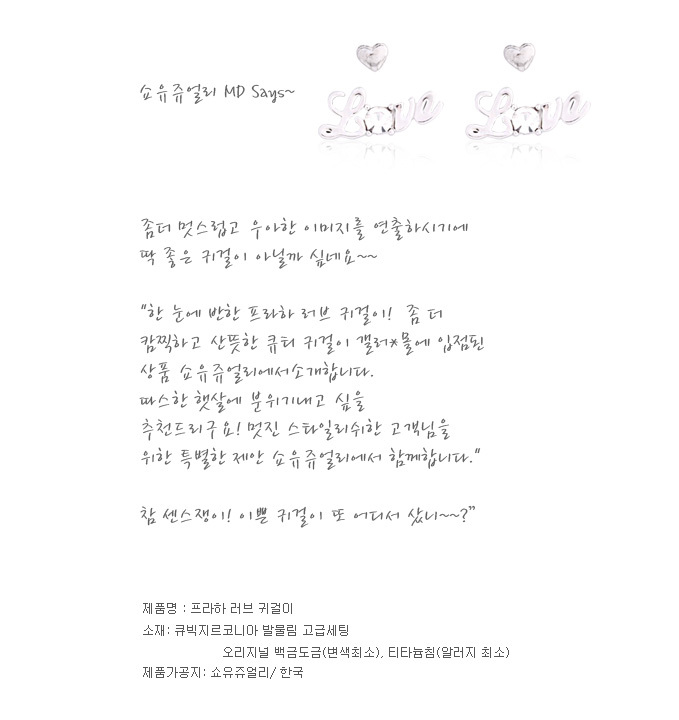 쇼유쥬얼리 MD Says~
Love Love
좀더 멋스럽고 우아한 이미지를 연출하시기에
딱 좋은 귀걸이 아닐까 싶네요~~
"한 눈에 반한 프라하 러브 귀걸이! 좀 더
캄찍하고 산뜻한 큐티 귀걸이 갤러*몰에 입점된
상품 쇼유쥬얼리에서소개합니다.
따스한 햇살에 분위기내고 싶을
추천드리구요! 멋진 스타일리쉬한 고객님을
위한 특별한 제안 쇼유쥬얼리에서 함께합니다."
참 센스쟁이! 이쁜 귀걸이 또 어디서 샀니~~?"
제품명 : 프라하 러브 귀걸이
소재: 큐빅지르코니아 발물림 고급세팅
오리지널 백금도금(변색최소), 티타늄침(알러지 최소)
제품가공지: 쇼유쥬얼리/ 한국